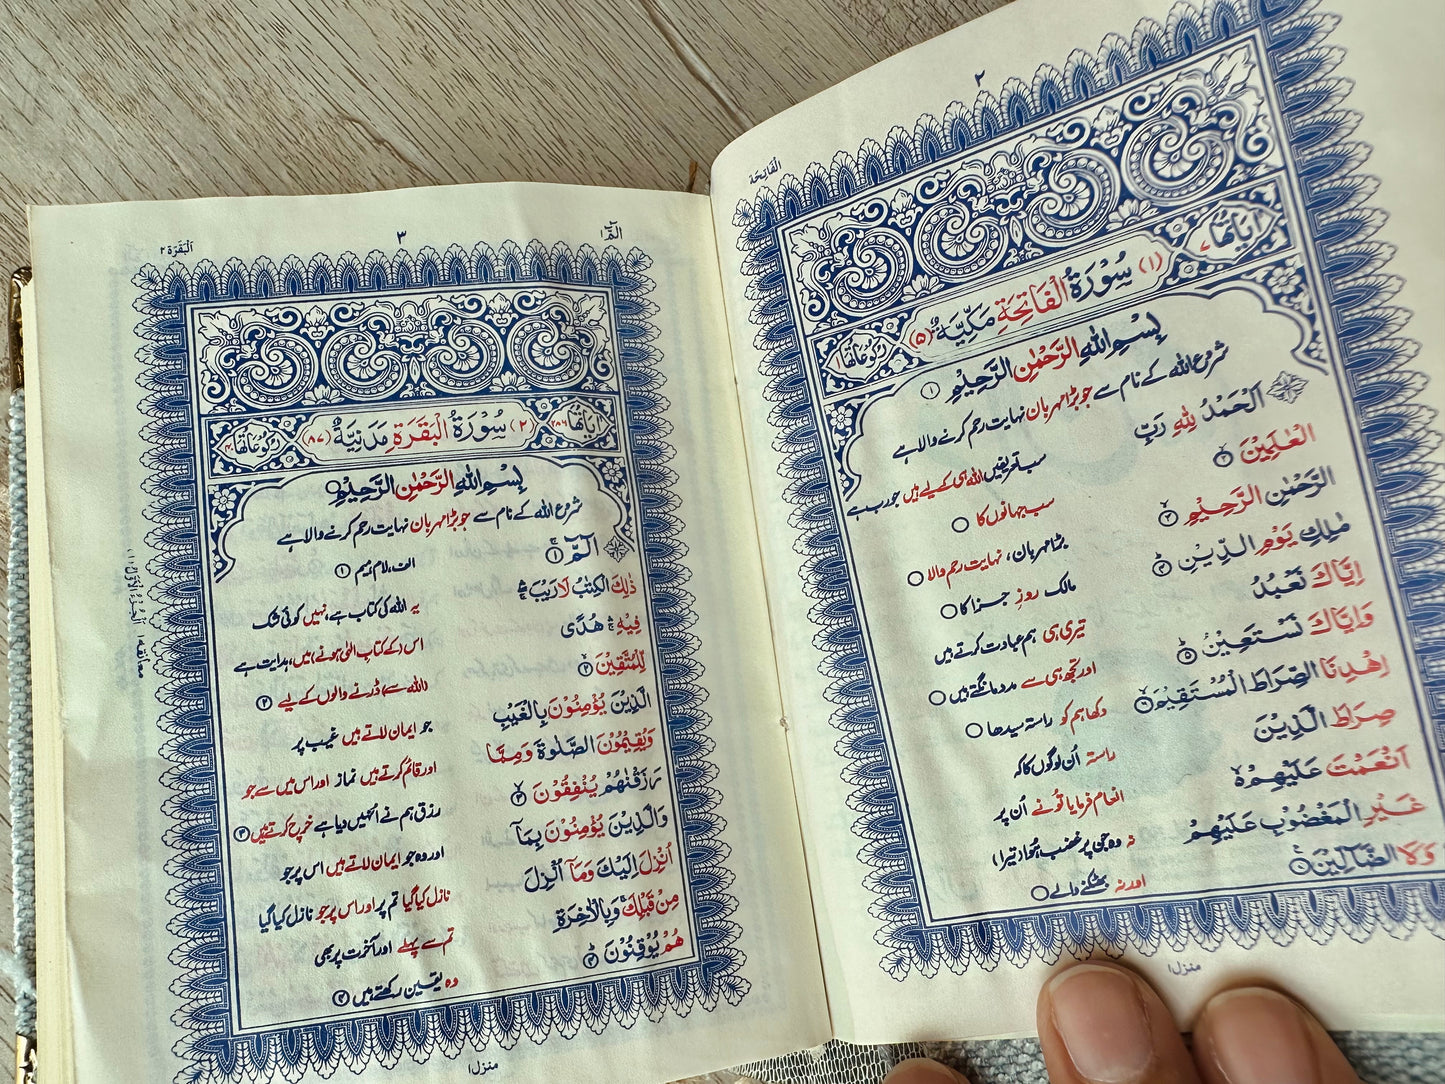 ٢
الْفَاتِحَة
اٰيَاتُهَا ٧
(١) سُوْرَةُ الْفَاتِحَةِ مَكِّيَّةٌ (٥)
رُكُوْعَاتُهَا
بِسْمِ اللّٰهِ الرَّحْمٰنِ الرَّحِيْمِ ١
شروع اللہ کے نام سے جو بڑا مہربان نہایت رحم کرنے والا ہے
اَلْحَمْدُ لِلّٰهِ رَبِّ
سب تعریفیں اللہ ہی کے لیے ہیں جو رب ہے
الْعٰلَمِيْنَ ٢
سب جہانوں کا
الرَّحْمٰنِ الرَّحِيْمِ ٣
بڑا مہربان، نہایت رحم والا
مٰلِكِ يَوْمِ الدِّيْنِ ٤
مالک روزِ جزا کا
اِيَّاكَ نَعْبُدُ
تیری ہی ہم عبادت کرتے ہیں
وَاِيَّاكَ نَسْتَعِيْنُ ٥
اور تجھ ہی سے مدد مانگتے ہیں
اِهْدِنَا الصِّرَاطَ الْمُسْتَقِيْمَ ٦
دکھا ہم کو راستہ سیدھا
صِرَاطَ الَّذِيْنَ
راستہ اُن لوگوں کا کہ
اَنْعَمْتَ عَلَيْهِمْ
انعام فرمایا تُو نے اُن پر
غَيْرِ الْمَغْضُوْبِ عَلَيْهِمْ
نہ وہ جن پر غضب ہُوا تیرا
وَلَا الضَّآلِّيْنَ ٧
اور نہ بھٹکنے والے
منزل ١
الٓمّٓ ١
٣
اَلْبَقَرَة ٢
اٰيَاتُهَا ٢٨٦
(٢) سُوْرَةُ الْبَقَرَةِ مَدَنِيَّةٌ (٨٧)
رُكُوْعَاتُهَا ٤٠
بِسْمِ اللّٰهِ الرَّحْمٰنِ الرَّحِيْمِ
شروع اللہ کے نام سے جو بڑا مہربان نہایت رحم کرنے والا ہے
الٓمّٓ ١
الف، لام، میم ١
ذٰلِكَ الْكِتٰبُ لَا رَيْبَ
یہ اللہ کی کتاب ہے، نہیں کوئی شک
فِيْهِ هُدًى
اس (کے کتابِ الٰہی ہونے) میں، ہدایت ہے
لِّلْمُتَّقِيْنَ ٢
(اللہ سے) ڈرنے والوں کے لیے ٢
الَّذِيْنَ يُؤْمِنُوْنَ بِالْغَيْبِ
جو ایمان لاتے ہیں غیب پر
وَيُقِيْمُوْنَ الصَّلٰوةَ وَمِمَّا
اور قائم کرتے ہیں نماز اور اس میں سے جو
رَزَقْنٰهُمْ يُنْفِقُوْنَ ٣
رزق ہم نے انہیں دیا ہے خرچ کرتے ہیں ٣
وَالَّذِيْنَ يُؤْمِنُوْنَ بِمَآ
اور وہ جو ایمان لاتے ہیں اس پر جو
اُنْزِلَ اِلَيْكَ وَمَآ اُنْزِلَ
نازل کیا گیا تم پر اور اس پر جو نازل کیا گیا
مِنْ قَبْلِكَ وَبِالْاٰخِرَةِ
تم سے پہلے اور آخرت پر بھی
هُمْ يُوْقِنُوْنَ ٤
وہ یقین رکھتے ہیں ٤
معانقه ١
اَلْجُزْءُ الْاَوَّلُ ١
منزل ١